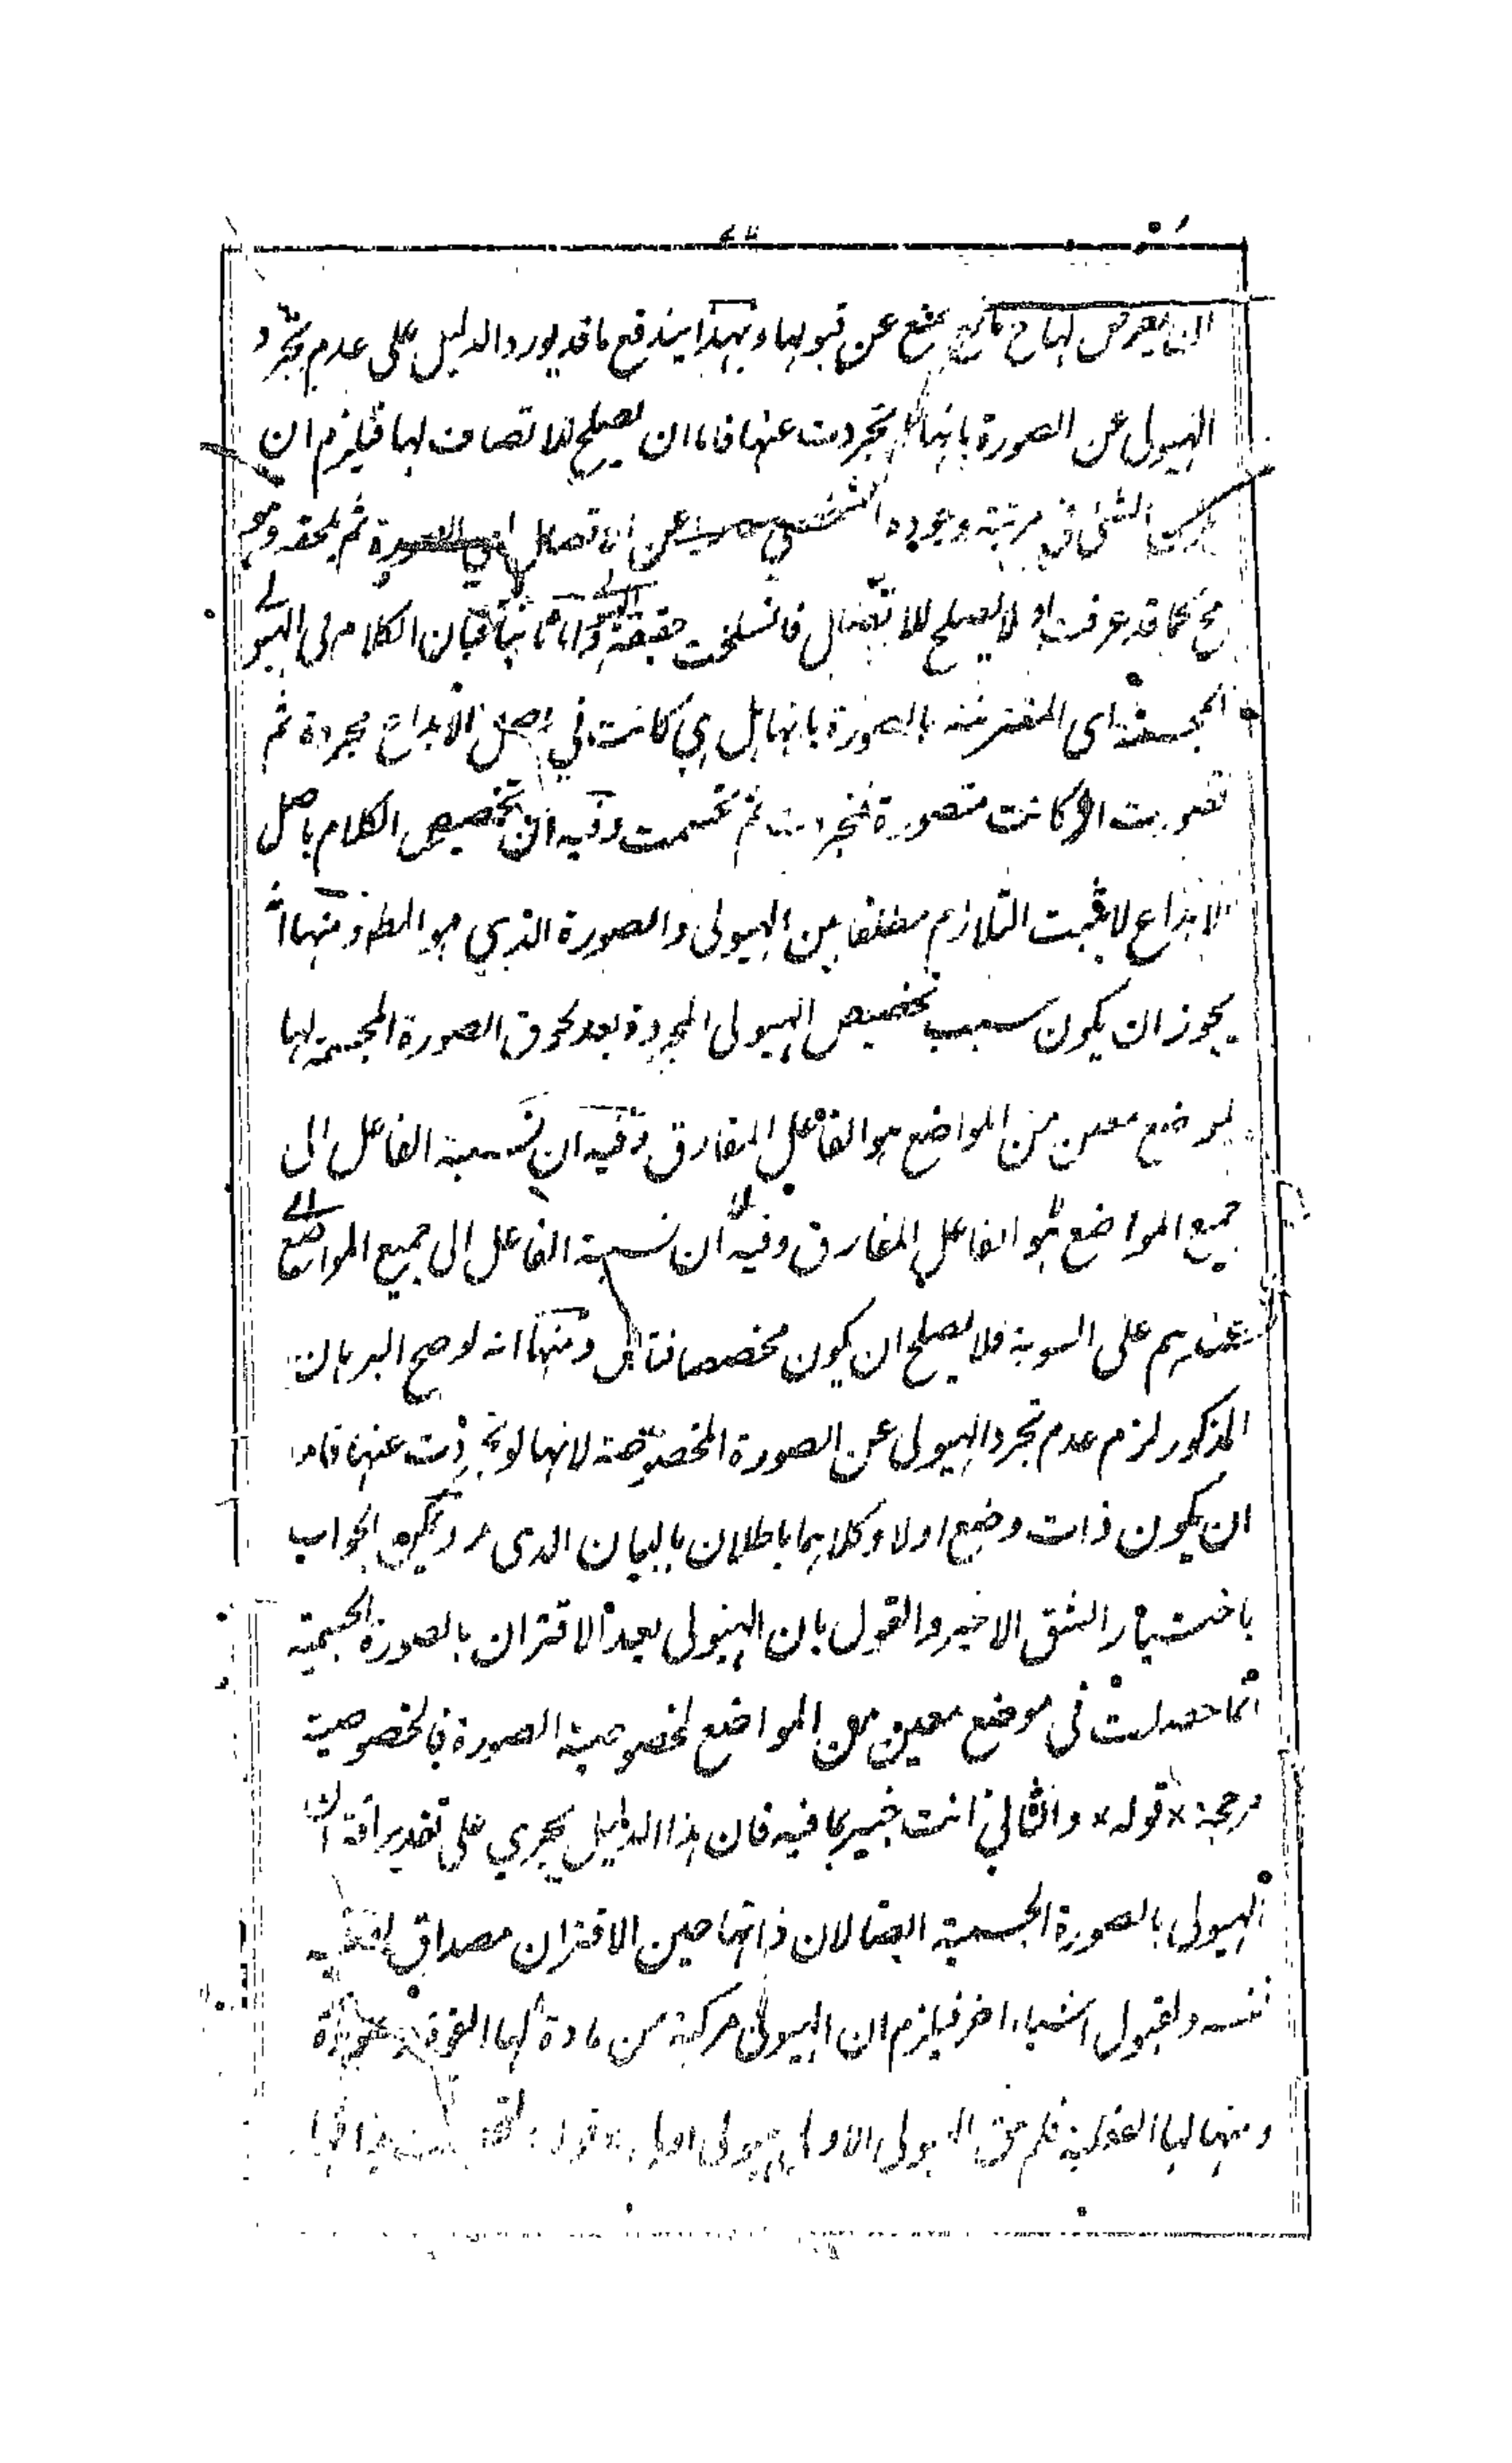 ان يعرض لهاح مانع يمنع عن قبولها وبهذا يندفع ما قد يورد الدليل على عدم تجرد
الهيولى عن الصورة بانها تجردت عنها فاما ان يصلح للاتصاف لها فيلزم ان
الشئ في مرتبة وجوده الشخصي عن الاتصال الصورة ثم يلحقه وهو
مح كما قد عرفت او لا يصلح للاتصال فانسلخت حقيقة واما ثانيا فبان الكلام في الهيولى
المجسمة اى المقترنة بالصورة بانها بل هي كانت في اصل الابداع مجردة ثم
تصورت او كانت متصورة فتجردت ثم تجسمت وفيه ان تخصيص الكلام باصل
الابداع لا يثبت التلازم مطلقا بين الهيولى والصورة الذي هو المط ومنها انه
يجوز ان يكون سبب تخصيص الهيولى المجردة بعد لحوق الصورة الجسمية لها
بوضع معين من المواضع هو الفاعل المفارق وفيه ان نسبة الفاعل الى
جميع المواضع هو الفاعل المفارق وفيه ان نسبة الفاعل الى جميع المواضع
عندهم على السوية فلا يصلح ان يكون مخصصا فتامل ومنها انه لو صح البرهان
المذكور لزم عدم تجرد الهيولى عن الصورة المخصوصة لانها لو تجردت عنها فاما
ان يكون ذات وضع او لا وكلاهما باطلان بالبيان الذى مر ويمكن الجواب
باختيار الشق الاخير والقول بان الهيولى بعد الاقتران بالصورة الجسمية
انما حصلت في موضع معين من المواضع لخصوصية الصورة فالخصوصية
مرجحة × قوله × والثاني انت خبير بما فيه فان هذا الدليل يجري على تقدير اقتران
الهيولى بالصورة الجسمية ايضا لان ذاتها حين الاقتران مصداق لفعلية
نفسه ولقبول اشياء اخر فيلزم ان الهيولى مركبة من مادة لها القوة وصورة
ومنها لها الفعلية فلم يبق الهيولى الاولى هيولى اولى قوله